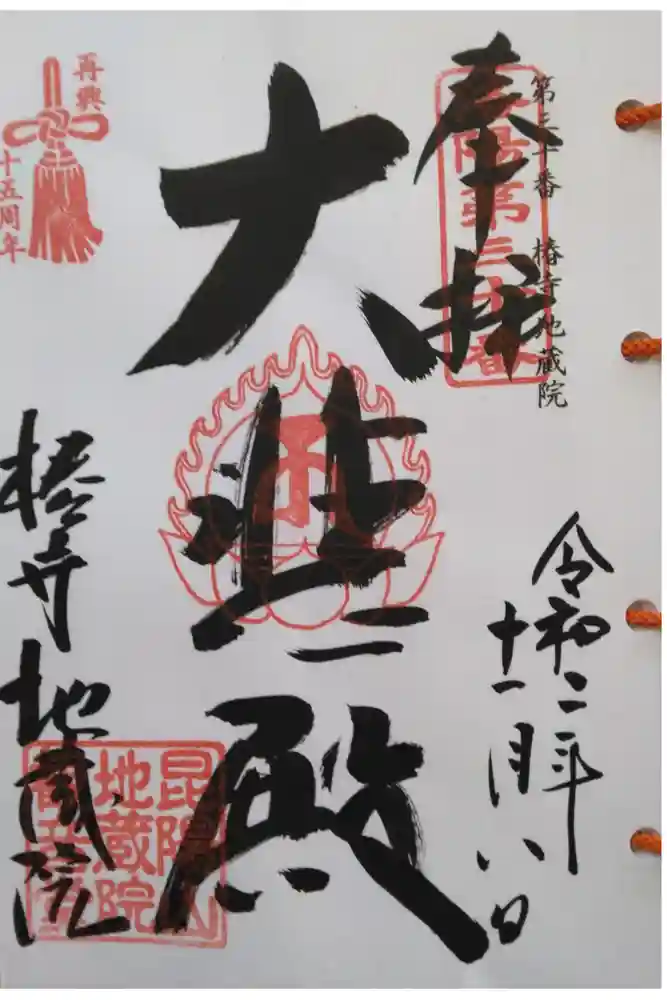 第三十番 椿寺地蔵院
奉拝
洛陽第三十番
令和二年
十一月八日
大悲殿
椿寺地蔵院
再興
十五周年
昆陽山
地蔵院